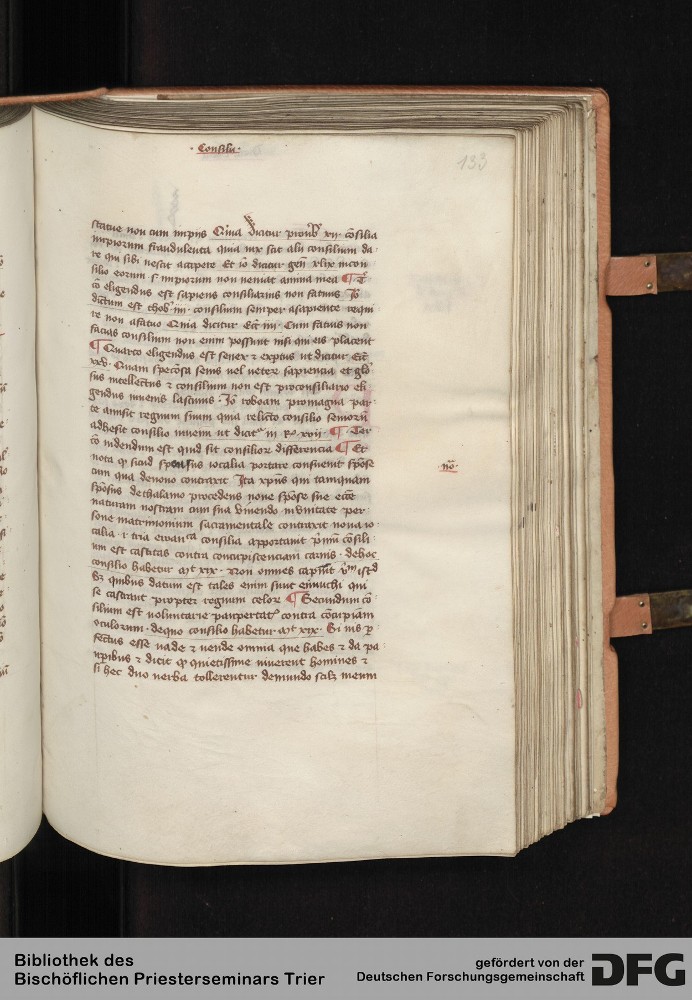 · Consiliū ·
133
statue non cum impiis Quia dicitur prouͦb xii · cōsilia
impiorum fraudulenta quia nix scit alii consilium da
re qui sibi nescit accipere Et iō dicitur gen̄ xlix in con
silio eorum impiorum non veniat anima mea ¶
cō eligendus est sapiens consiliarius non fatuus Iō
dictum est thob iiii · consilium semper a sapiente requi
re non a fatuo Quia dicitur Ecc̄ Cum fatuis non
facias consilium non enim possunt nisi que eis placent
¶ Quarto eligendus est senex et exptus ut dicitur Ecc̄
xxv · Quam spec̄osa senis vel vetere sapiencia et glō
sus intellectus et consilium non est pro consiliario eli
gendus iuuenis lasciuus · Iō roboam pro magna par
te amisit regnum suum quia relicto consilio seniorū
adhesit consilio iuuenū ut dicit iii ¶ Ter
cō videndum est quid sit consilior differencia ¶ Et
nota ꝙ sicud sponsus iocalia portare consueuit spōse
cum qua de nouo contraxit Ita xpūs qui tamquam
spōsus de thalamo procedens none spōse sue ecc̄e
naturam nostram cum sua viuendo in vnitate per
sone matrimonium sacramentale contraxit noua io
calia · i · tria ewan consilia apportauit p̄mū cōsili
um est castitas contra concupiscenciam carnis · de hoc
consilio habetur mt xix · Non omnes capiūt v̄m istud
sꝫ quibus datum est tales enim sunt eunuchi qui
se castrant propter regnum celorꝫ ¶ Secundum cō
silium est voluntarie paupertatꝭ contra cōcupiam
oculorum · de quo consilio habetur mt xix · Si vis p
fectus esse vade et vende omnia que habes et da pa
upibus et dicit ꝙ quietissime viuerent homines et
si hec duo verba tollerentur de mundo scilꝫ meum
nō ·
Bibliothek des
Bischöflichen Priesterseminars Trier
gefördert von der
Deutschen Forschungsgemeinschaft
DFG